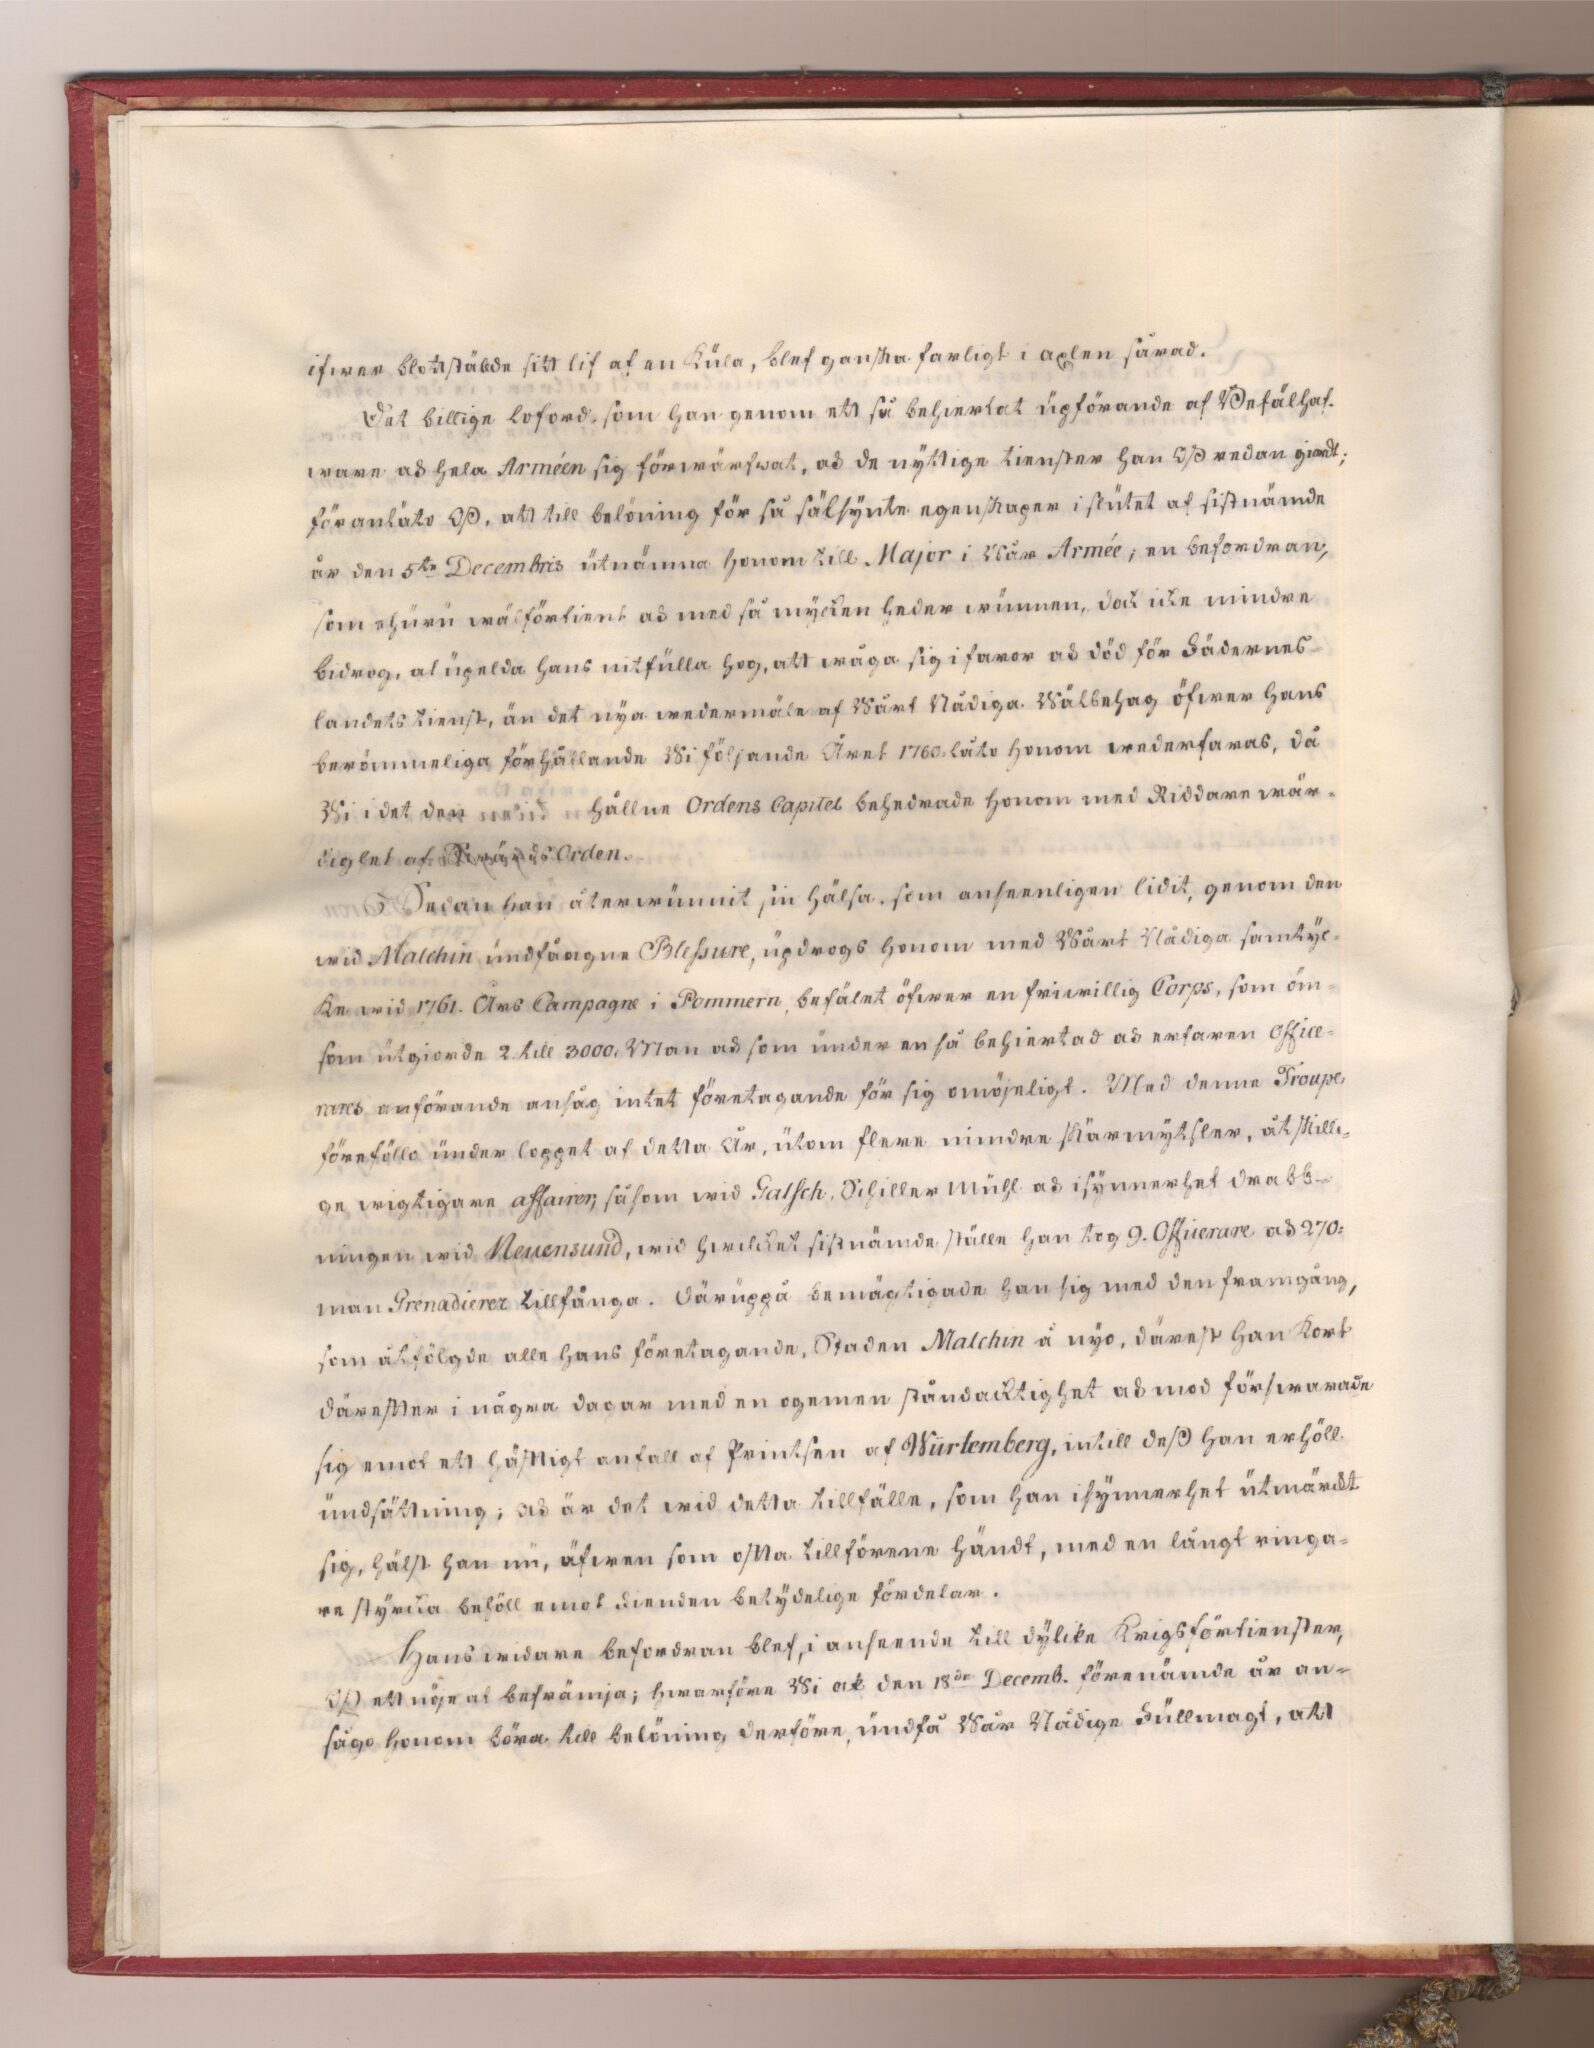 ifwer blottstälde sitt lif af en Kula, blef ganska farligt i axlen sårad.
Det billige loford, som han genom ett så behiertat upförande af Befälhaf-
ware och hela Arméen sig förwärfwat, och de nyttige tienster han Oss redan giordt;
föranläto Oss, att till belöning för så sälsynte egenskaper i slutet af sistnämde
år den 5te Decembris utnämna honom till Major i Wår Armée; en befordran,
som ehuru wälförtient och med så mycken heder wunnen, dock icke mindre
bidrog, at upelda hans nitfulla hog, att wåga sig i faror och död för Fädernes-
landets tienst, än det nya wedermäle af Wårt Nådiga Wälbehag öfwer hans
berömmeliga förhållande Wi följande Året 1760. läto honom wederfaras, då
Wi i det den hållne Ordens Capitel behedrade honom med Riddare wär-
dighet af Swärds Orden.
Sedan han återwunnit sin hälsa, som anseenligen lidit, genom den
wid Malchin undfångne Blessure, updrogs honom med Wårt Nådiga samtyc-
ke wid 1761. Års Campagne i Pommern, befälet öfwer en friwillig Corps, som om-
som utgiorde 2 till 3000. Man och som under en så behiertad och erfaren Office-
rares anförande ansåg intet företagande för sig omöjeligt. Med denne Troupe
föreföllo under loppet af detta År, utom flere mindre skärmytsler, åtskilli-
ge wigtigare affairer, såsom wid Galsch, Schiller Mühl och isynnerhet drabb-
ningen wid Neuensund, wid hwilcket sistnämde ställe han tog 9. Officerare och 270:
man Grenadierer tillfånga. Däruppå bemägtigade han sig med den framgång,
som åtfölgde alle hans företagande, Staden Malchin å nyo, därest han kort
därefter i några dagar med en ogemen ståndacktighet och mod förswarade
sig emot ett häftigt anfall af Printsen af Würtemberg, intill dess han erhöll
undsättning; och är det wid detta tillfälle, som han isynnerhet utmärckt
sig, hälst han nu, äfwen som ofta tillförene händt, med en långt ringa-
re styrcka behöll emot Fienden betydelige fördelar.
Hans widare befordran blef, i anseende till dylike Krigsförtienster,
Oss ett nöje at befrämja; hwarföre Wi ock den 18de Decemb. förenämde år an-
sågo honom böra till belöning derföre, undfå Wår Nådige Fullmagt, att